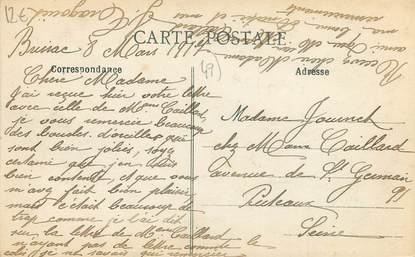 12€
CARTE POSTALE
Correspondance
Adresse
(49)
Brissac 8 Mars 191
Chère Madame
j'ai reçue hier votre lettre
avec celle de Mme Caillard
je vous remercie beaucoup
des boucles d'oreilles qui
sont bien jolies, soyez
certaine que j'en suis
bien contente, et que vous
m'avez fait bien plaisir
mais c'était beaucoup de
trop comme je l'ai dit
sur la lettre de Mme Caillard
n'ayant pas de lettre comme le
je ne savais qui remercier
Recevez chère Madame
Madame Jounet
chez Mme Caillard
avenue de St Germain
91
Puteaux
Seine